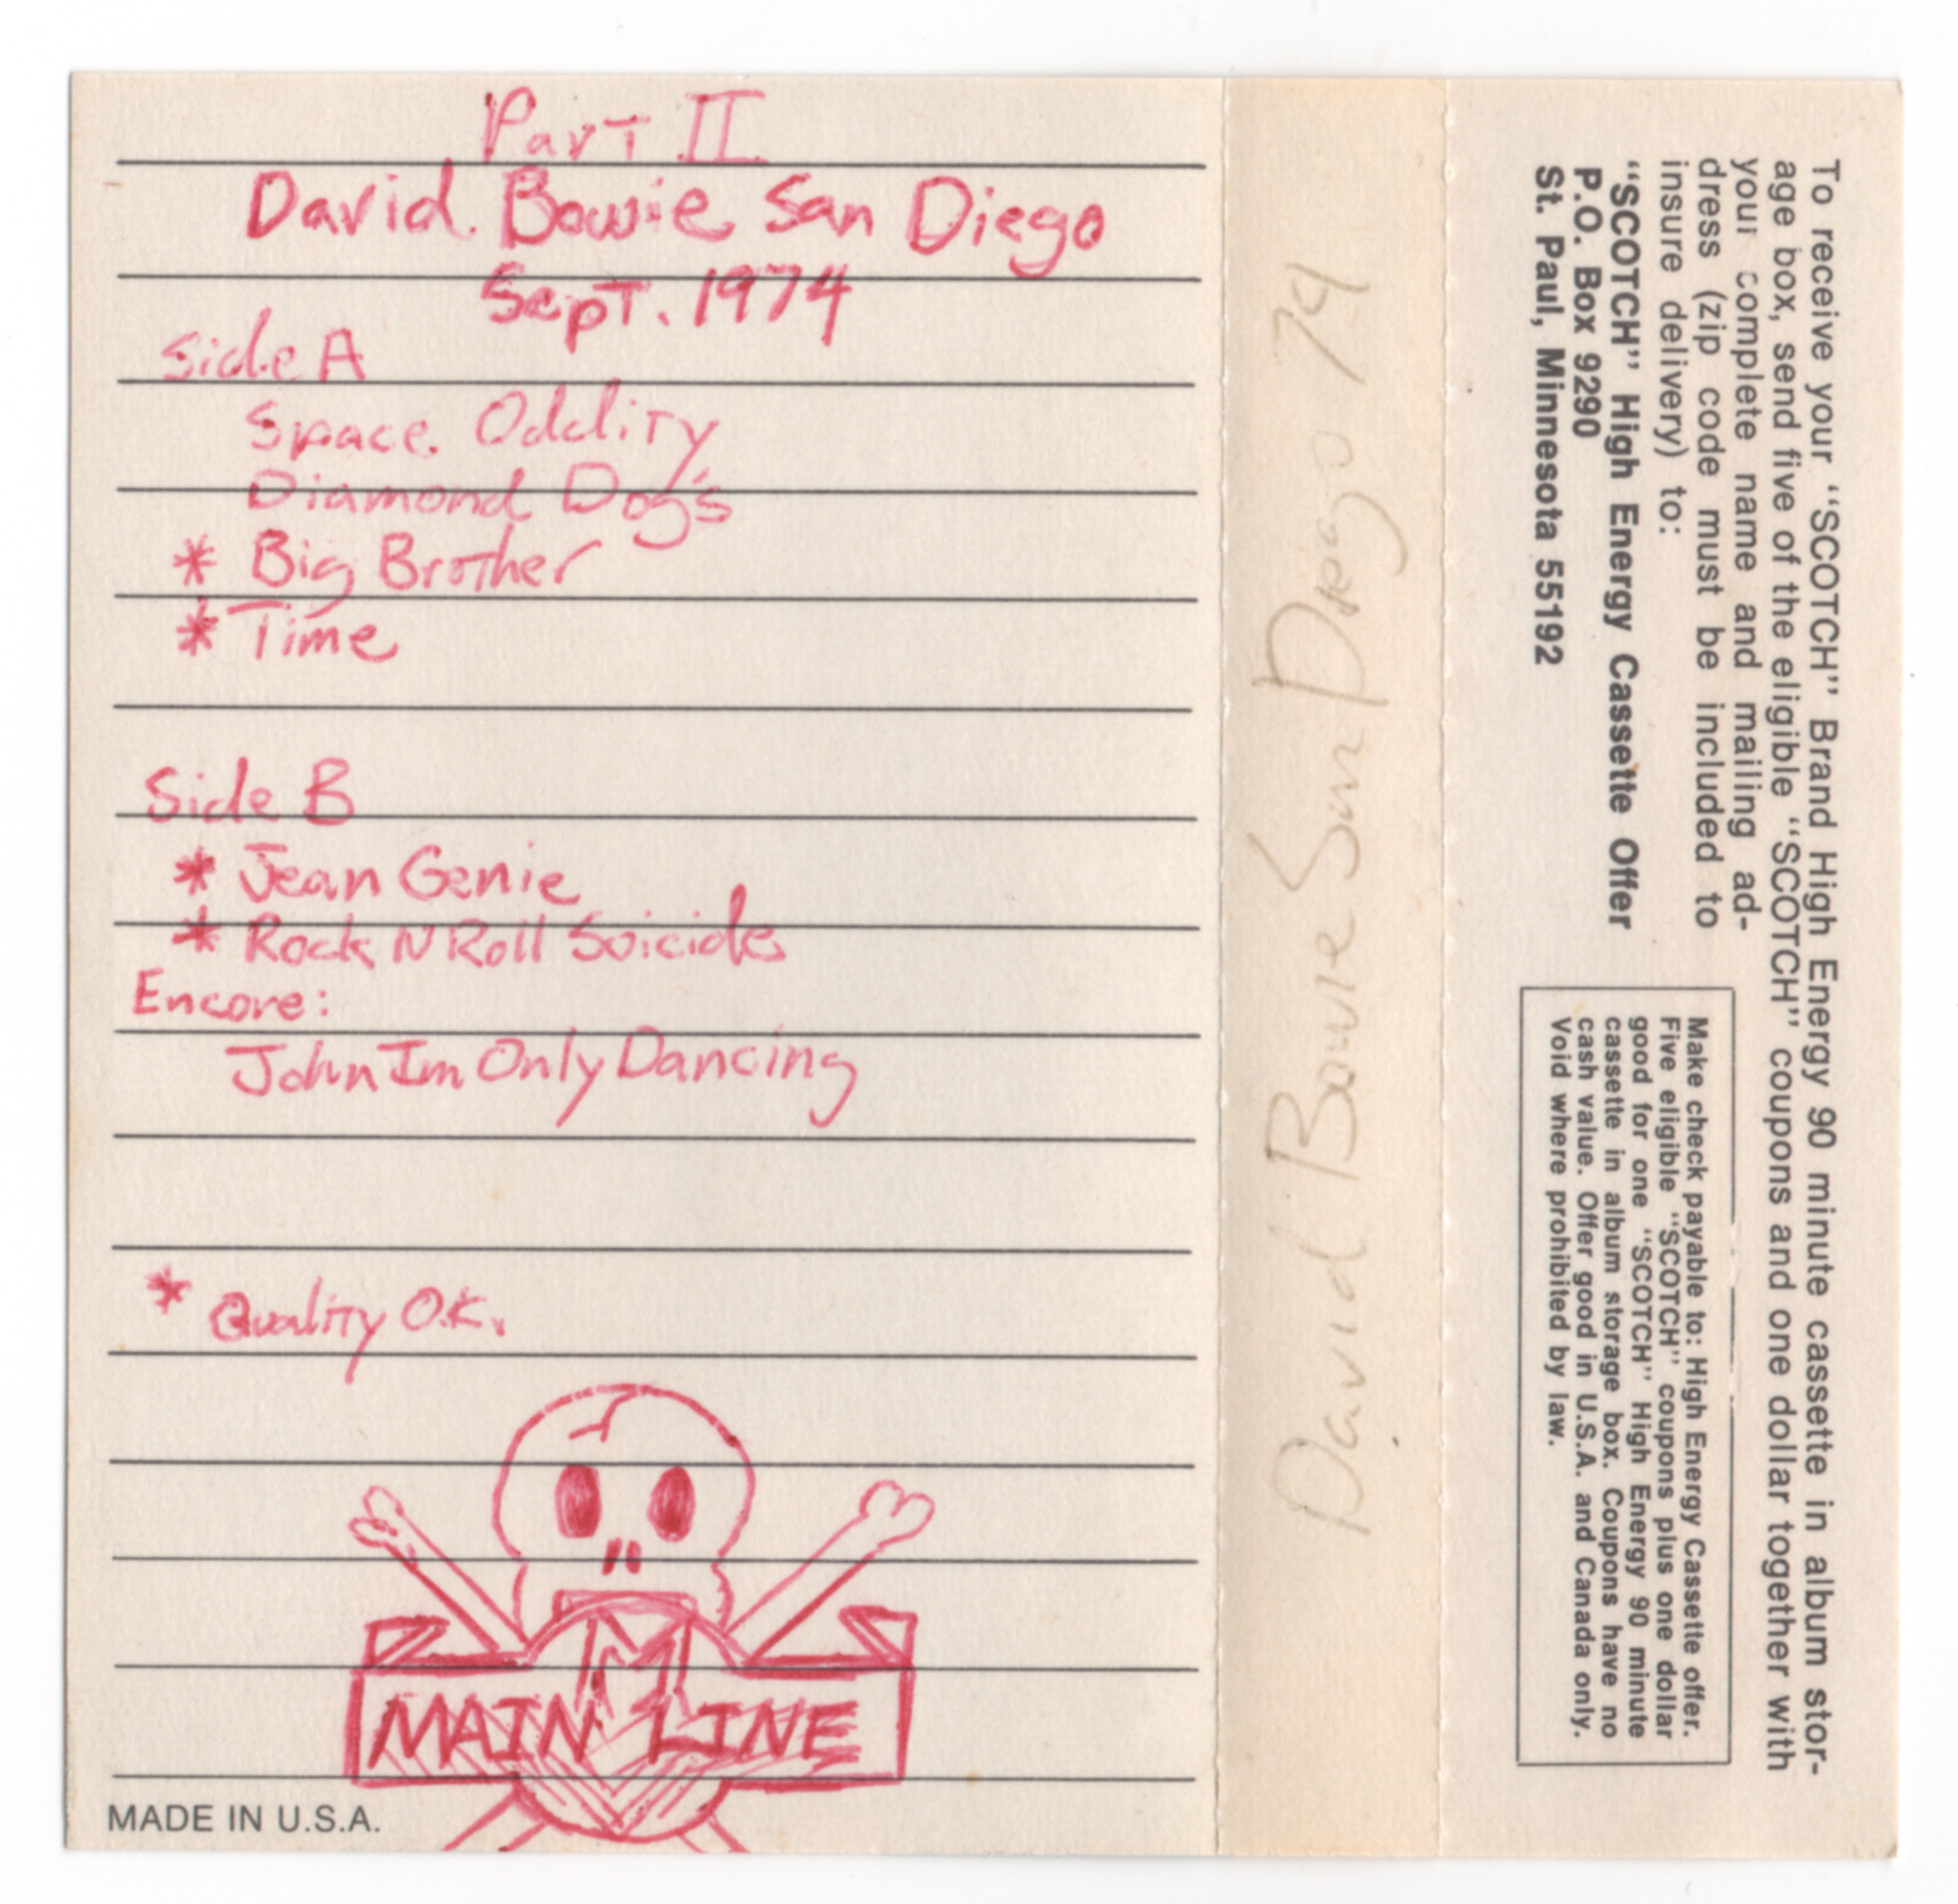 Part II
David Bowie San Diego
Sept. 1974
Side A
Space Oddity
Diamond Dog's
* Big Brother
* Time
Side B
* Jean Genie
* Rock N Roll Suicide
Encore:
John Im Only Dancing
* Quality O.K.
M
MAIN LINE
MADE IN U.S.A.
David Bowie San Diego 74
To receive your "SCOTCH" Brand High Energy 90 minute cassette in album stor-
age box, send five of the eligible "SCOTCH" coupons and one dollar together with
your complete name and mailing ad-
dress (zip code must be included to
insure delivery) to:
"SCOTCH" High Energy Cassette Offer
P.O. Box 9290
St. Paul, Minnesota 55192
Make check payable to: High Energy Cassette offer.
Five eligible "SCOTCH" coupons plus one dollar
good for one "SCOTCH" High Energy 90 minute
cassette in album storage box. Coupons have no
cash value. Offer good in U.S.A. and Canada only.
Void where prohibited by law.